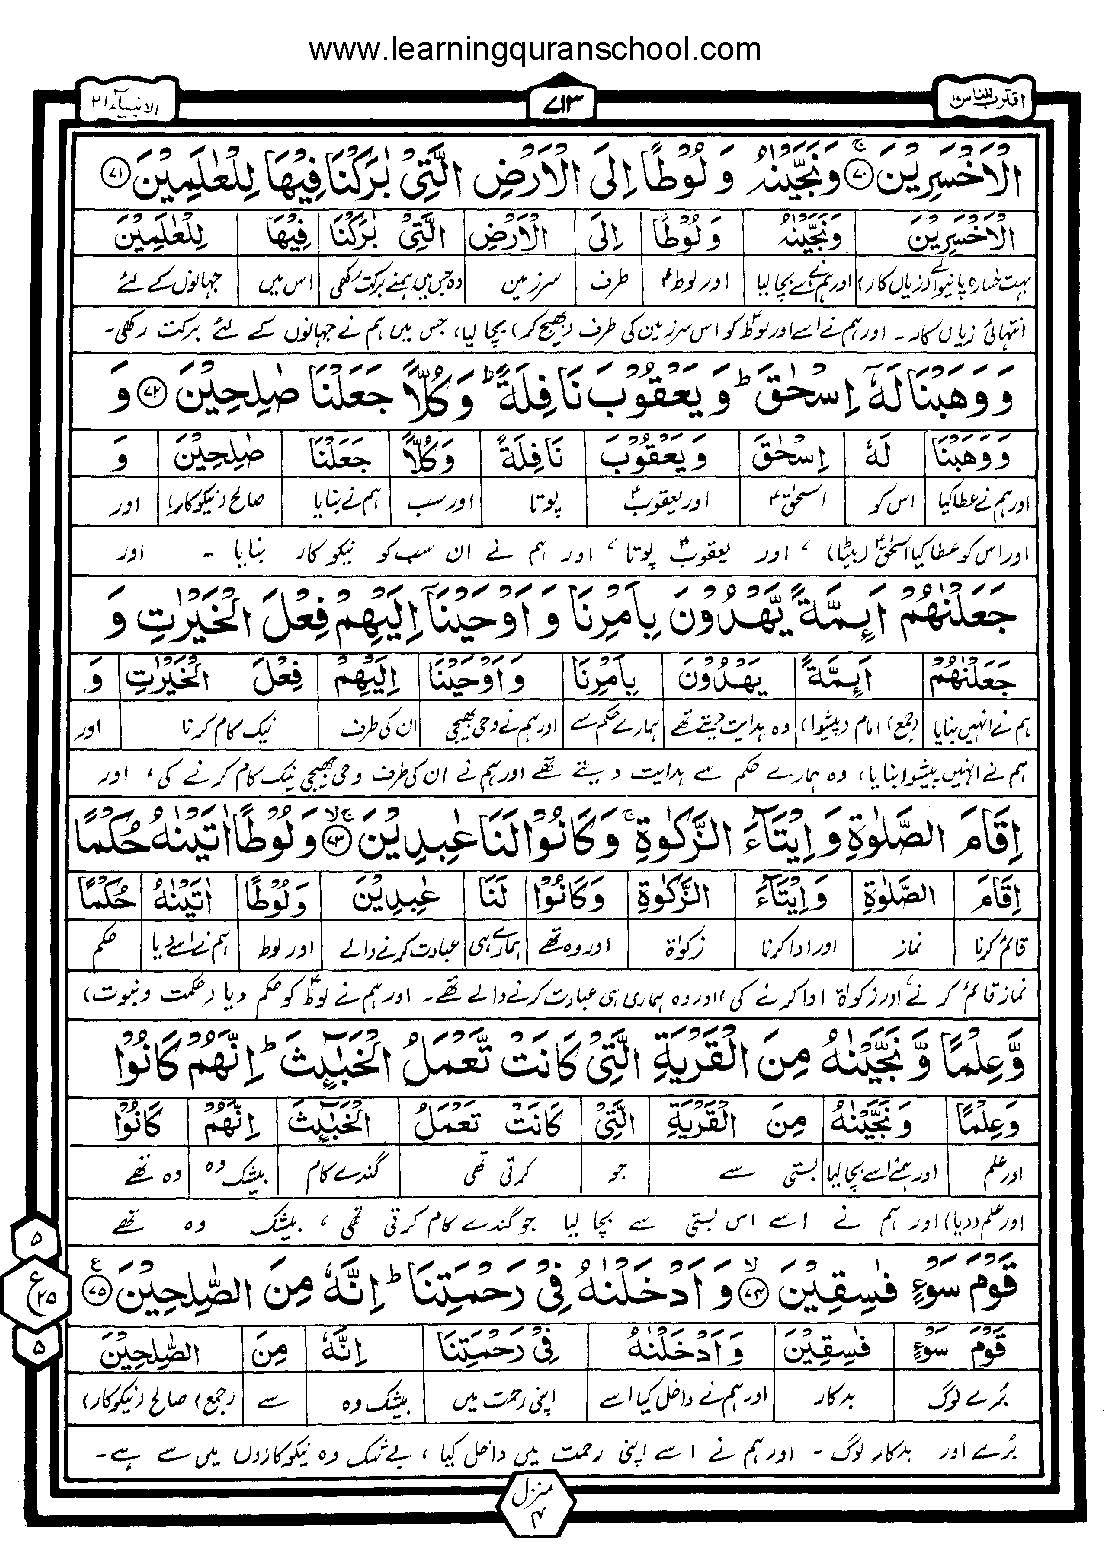 www.learningquranschool.com
اقترب للناس ۱۷
۷۱۳
الانبیآء ۲۱
الْاَخْسَرِیْنَ ۚ﴿۷۰﴾ وَنَجَّیْنٰهُ وَ لُوْطًا اِلَی الْاَرْضِ الَّتِیْ بٰرَكْنَا فِیْهَا لِلْعٰلَمِیْنَ ﴿۷۱﴾
الْاَخْسَرِیْنَ وَنَجَّیْنٰهُ وَ لُوْطًا اِلَی الْاَرْضِ الَّتِیْ بٰرَكْنَا فِیْهَا لِلْعٰلَمِیْنَ
بہت خسارہ پانیوالے (زیاں کار) اور ہم نے اسے بچا لیا اور لوطؑ طرف سرزمین وہ جس میں ہمنے برکت رکھی اس میں جہانوں کے لئے
انتہائی زیاں کار۔ اور ہم نے اسے اور لوطؑ کو اس سرزمین کی طرف (بھیج کر) بچا لیا، جس میں ہم نے جہانوں کے لئے برکت رکھی۔
وَ وَهَبْنَا لَهٗۤ اِسْحٰقَ ؕ وَ یَعْقُوْبَ نَافِلَةً ؕ وَ كُلًّا جَعَلْنَا صٰلِحِیْنَ ﴿۷۲﴾ وَ
وَ وَهَبْنَا لَهٗ اِسْحٰقَ وَ یَعْقُوْبَ نَافِلَةً وَ كُلًّا جَعَلْنَا صٰلِحِیْنَ وَ
اور ہم نے عطا کیا اس کو اسحٰقؑ اور یعقوبؑ پوتا اور سب ہم نے بنایا صالح (نیکوکار) اور
اور اس کو عطا کیا اسحٰقؑ (بیٹا) ، اور یعقوبؑ پوتا ، اور ہم نے ان سب کو نیکو کار بنایا ۔ اور
جَعَلْنٰهُمْ اَئِمَّةً یَّهْدُوْنَ بِاَمْرِنَا وَ اَوْحَیْنَاۤ اِلَیْهِمْ فِعْلَ الْخَیْرٰتِ وَ
جَعَلْنٰهُمْ اَئِمَّةً یَهْدُوْنَ بِاَمْرِنَا وَ اَوْحَیْنَاۤ اِلَیْهِمْ فِعْلَ الْخَیْرٰتِ وَ
ہم نے انہیں بنایا (جمع) امام (پیشوا) وہ ہدایت دیتے تھے ہمارے حکم سے اور ہم نے وحی بھیجی ان کی طرف نیک کام کرنا اور
ہم نے انہیں پیشوا بنایا، وہ ہمارے حکم سے ہدایت دیتے تھے اور ہم نے ان کی طرف وحی بھیجی نیک کام کرنے کی ، اور
اِقَامَ الصَّلٰوةِ وَ اِیْتَآءَ الزَّكٰوةِ ۚ وَ كَانُوْا لَنَا عٰبِدِیْنَ ﴿۷۳﴾ ۚۙ وَ لُوْطًا اٰتَیْنٰهُ حُكْمًا
اِقَامَ الصَّلٰوةِ وَ اِیْتَآءَ الزَّكٰوةِ وَ كَانُوْا لَنَا عٰبِدِیْنَ وَ لُوْطًا اٰتَیْنٰهُ حُكْمًا
قائم کرنا نماز اور ادا کرنا زکوٰۃ اور وہ تھے ہمارے ہی عبادت کرنے والے اور لوط ہم نے اسے دیا حکم
نماز قائم کرنے، اور زکوٰۃ ادا کرنے کی ، اور وہ ہماری ہی عبادت کرنے والے تھے۔ اور ہم نے لوطؑ کو حکم دیا (حکمت و نبوت)
وَّ عِلْمًا وَّ نَجَّیْنٰهُ مِنَ الْقَرْیَةِ الَّتِیْ كَانَتْ تَّعْمَلُ الْخَبٰٓئِثَ ؕ اِنَّهُمْ كَانُوْا
وَ عِلْمًا وَ نَجَّیْنٰهُ مِنَ الْقَرْیَةِ الَّتِیْ كَانَتْ تَعْمَلُ الْخَبٰٓئِثَ اِنَّهُمْ كَانُوْا
اور علم اور ہمنے اسے بچا لیا بستی سے جو کرتی تھی گندے کام بیشک وہ وہ تھے
اور علم (دیا) اور ہم نے اسے اس بستی سے بچا لیا جو گندے کام کرتی تھی ، بیشک وہ تھے
قَوْمَ سَوْءٍ فٰسِقِیْنَ ۙ﴿۷۴﴾ وَ اَدْخَلْنٰهُ فِیْ رَحْمَتِنَا ؕ اِنَّهٗ مِنَ الصّٰلِحِیْنَ ﴿۷۵﴾ ع
قَوْمَ سَوْءٍ فٰسِقِیْنَ وَ اَدْخَلْنٰهُ فِیْ رَحْمَتِنَا اِنَّهٗ مِنَ الصّٰلِحِیْنَ
بُرے لوگ بدکار اور ہم نے داخل کیا اسے اپنی رحمت میں بیشک وہ سے (جمع) صالح (نیکوکار)
بُرے اور بدکار لوگ ۔ اور ہم نے اسے اپنی رحمت میں داخل کیا ، بے شک وہ نیکوکاروں میں سے ہے۔
۵
ع ۲۵
۵
منزل ۴